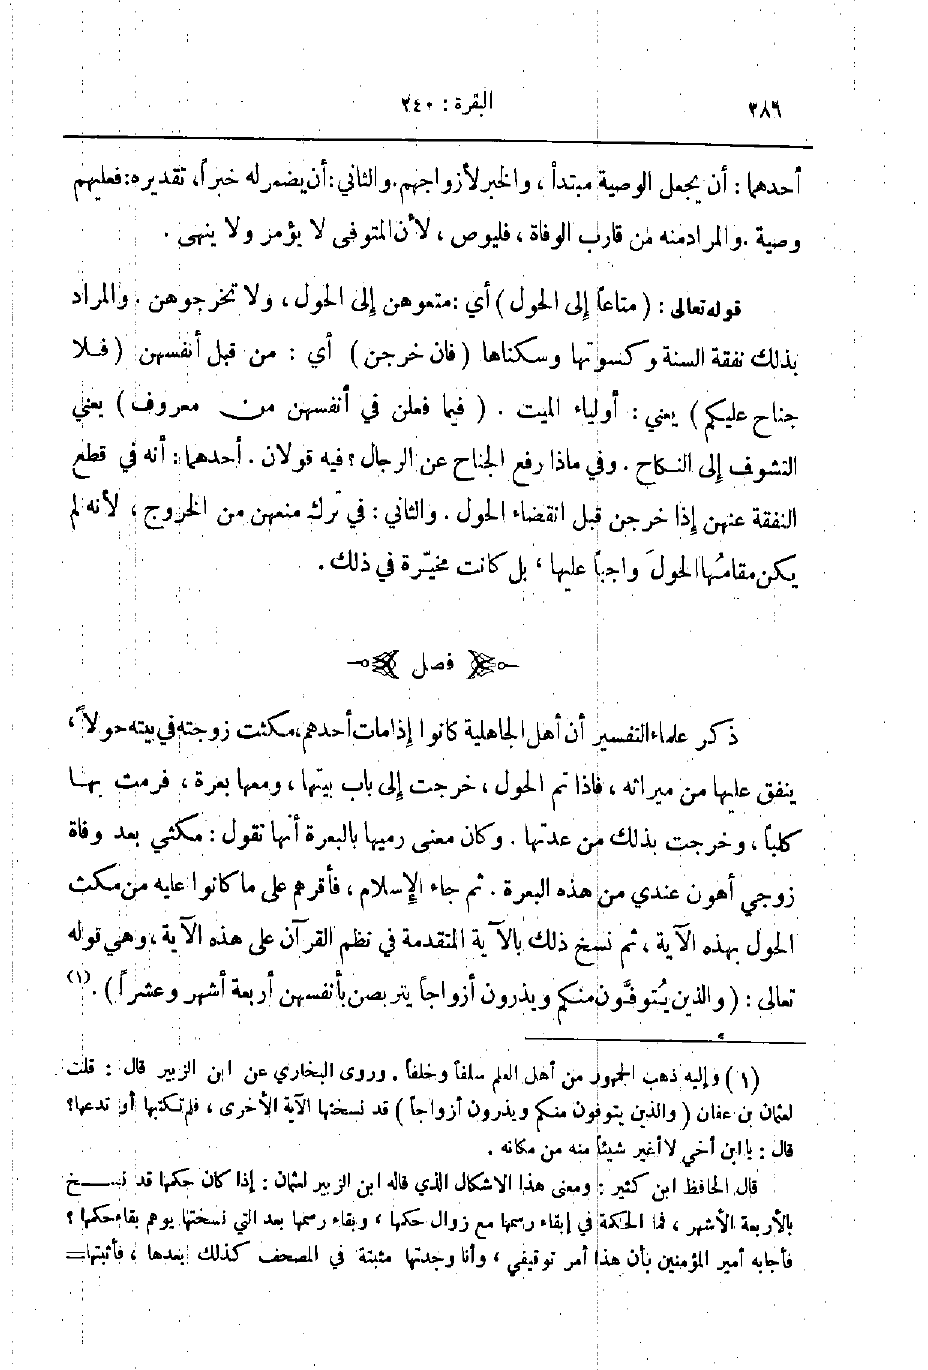 ٢٨٦ البقرة : ٢٤٠
أحدهما : أن يجعل الوصية مبتدأ ، والخبر لأزواجهم. والثاني : أن يضمر له خبراً، تقديره: فعليهم
وصية . والمراد منه من قارب الوفاة ، فليوص ، لأن المتوفى لا يؤمر ولا ينهى .
قوله تعالى : ( متاعاً إلى الحول ) أي : متعوهن إلى الحول ، ولا تخرجوهن . والمراد
بذلك نفقة السنة وكسوتها وسكناها ( فان خرجن ) أي : من قبل أنفسهن ( فلا
جناح عليكم ) يعني : أولياء الميت . ( فيما فعلن في أنفسهن من معروف ) يعني
التشوف إلى النكاح . وفي ماذا رفع الجناح عن الرجال ؟ فيه قولان . أحدهما : أنه في قطع
النفقة عنهن إذا خرجن قبل انقضاء الحول . والثاني : في ترك منعهن من الخروج ، لأنه لم
يكن مقامُها الحولَ واجباً عليها ، بل كانت مخيّرة في ذلك .
فصل
ذكر علماء التفسير أن أهل الجاهلية كانوا إذا مات أحدهم، مكثت زوجته في بيته حولاً ،
ينفق عليها من ميراثه ، فاذا تم الحول ، خرجت إلى باب بيتها ، ومعها بعرة ، فرمت بها
كلباً ، وخرجت بذلك من عدتها . وكان معنى رميها بالبعرة أنها تقول : مكثي بعد وفاة
زوجي أهون عندي من هذه البعرة . ثم جاء الإسلام ، فأقرهم على ما كانوا عليه من مكث
الحول بهذه الآية ، ثم نسخ ذلك بالآية المتقدمة في نظم القرآن على هذه الآية ، وهي قوله
تعالى : ( والذين يُتوفَّون منكم ويذرون أزواجاً يتربصن بأنفسهن أربعة أشهر وعشراً ) . (١)
(١) وإليه ذهب الجمهور من أهل العلم سلفاً وخلفاً . وروى البخاري عن ابن الزبير قال : قلت
لعثمان بن عفان ( والذين يتوفون منكم ويذرون أزواجاً ) قد نسختها الآية الأخرى ، فلم تكتبها أو تدعها؟
قال : يا ابن أخي لا أغير شيئاً منه من مكانه .
قال الحافظ ابن كثير : ومعنى هذا الاشكال الذي قاله ابن الزبير لعثمان : إذا كان حكمها قد نسخ
بالأربعة الأشهر ، فما الحكمة في إبقاء رسمها مع زوال حكمها ، وبقاء رسمها بعد التي نسختها يوهم بقاء حكمها ؟
فأجابه أمير المؤمنين بأن هذا أمر توقيفي ، وأنا وجدتها مثبتة في المصحف كذلك بعدها ، فأثبتها =